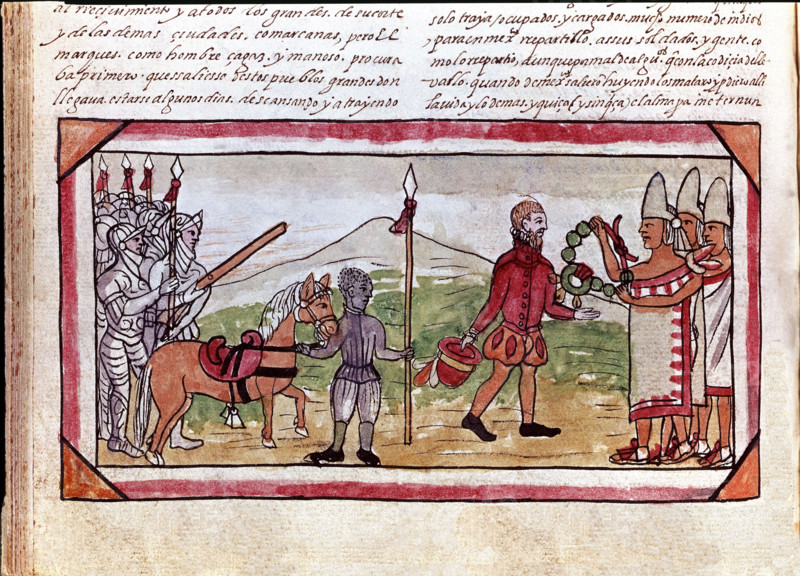 al rrecivimiento y a todos los grandes. de su corte
y de las demas ciudades, comarcanas, pero El
marques. como hombre capaz. y mañoso. procura
ba primero. que saliese destos pueblos grandes don
llegava. estarse algunos dias. descansando y atrayendo
solo traya ocupados, y cargados, mucho numero de indios
para en mexco rrepartillo, a sus soldados, y gente. co
mo lo rrepartio, aunque por mal de al
vallo. quando de mexco salieron huyendo los mataro y pdiero alli
la vida y lo demas. y quiça el alma pa in eternun